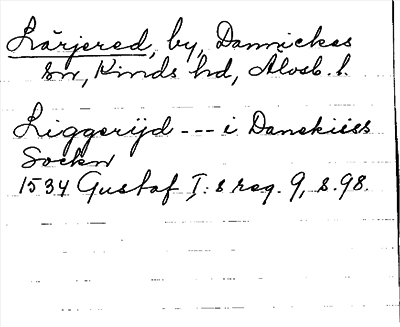 Lärjered, by, Dannickes
sn, Kinds hd, Älvsb. l.
Liggerijd --- i Danskiiss
Sockn
1534 Gustaf I:s reg. 9, s. 98.